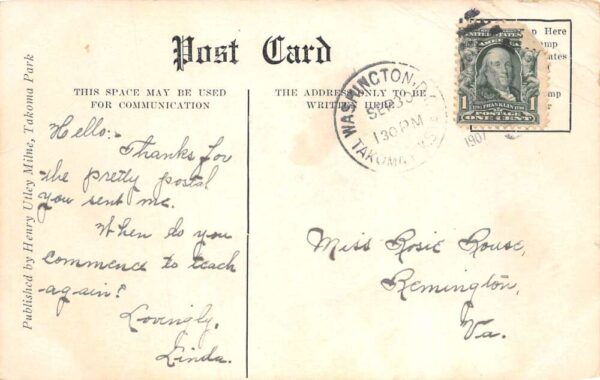 Post Card
THIS SPACE MAY BE USED
FOR COMMUNICATION
THE ADDRESS ONLY TO BE
WRITTEN HERE
Published by Henry Utley Milne, Takoma Park
Hello:-
Thanks for
the pretty postal
you sent me.
When do you
commence to teach
again?
Lovingly,
Linda.
Miss Rosie Rouse,
Remington,
Va.
WASHINGTON, D.
SEP 3
130 PM
TAKOMA
1907
UNITED STATES
OF AMERICA
1 FRANKLIN 1
POSTAGE
ONE CENT
p Here
mp
ates
mp